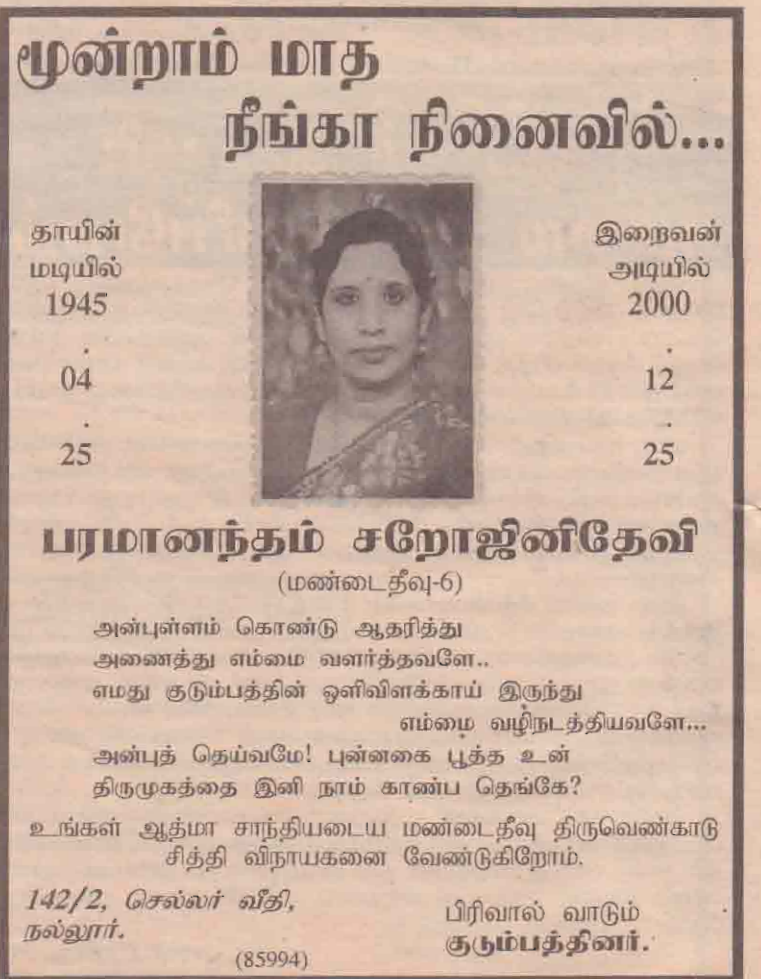 மூன்றாம் மாத
நீங்கா நினைவில்...
தாயின்
மடியில்
1945
.
04
.
25
இறைவன்
அடியில்
2000
.
12
.
25
பரமானந்தம் சறோஜினிதேவி
(மண்டைதீவு-6)
அன்புள்ளம் கொண்டு ஆதரித்து
அணைத்து எம்மை வளர்த்தவளே..
எமது குடும்பத்தின் ஒளிவிளக்காய் இருந்து
எம்மை வழிநடத்தியவளே...
அன்புத் தெய்வமே! புன்னகை பூத்த உன்
திருமுகத்தை இனி நாம் காண்ப தெங்கே?
உங்கள் ஆத்மா சாந்தியடைய மண்டைதீவு திருவெண்காடு
சித்தி விநாயகனை வேண்டுகிறோம்.
142/2, செல்லர் வீதி,
நல்லூர்.
(85994)
பிரிவால் வாடும்
குடும்பத்தினர்.